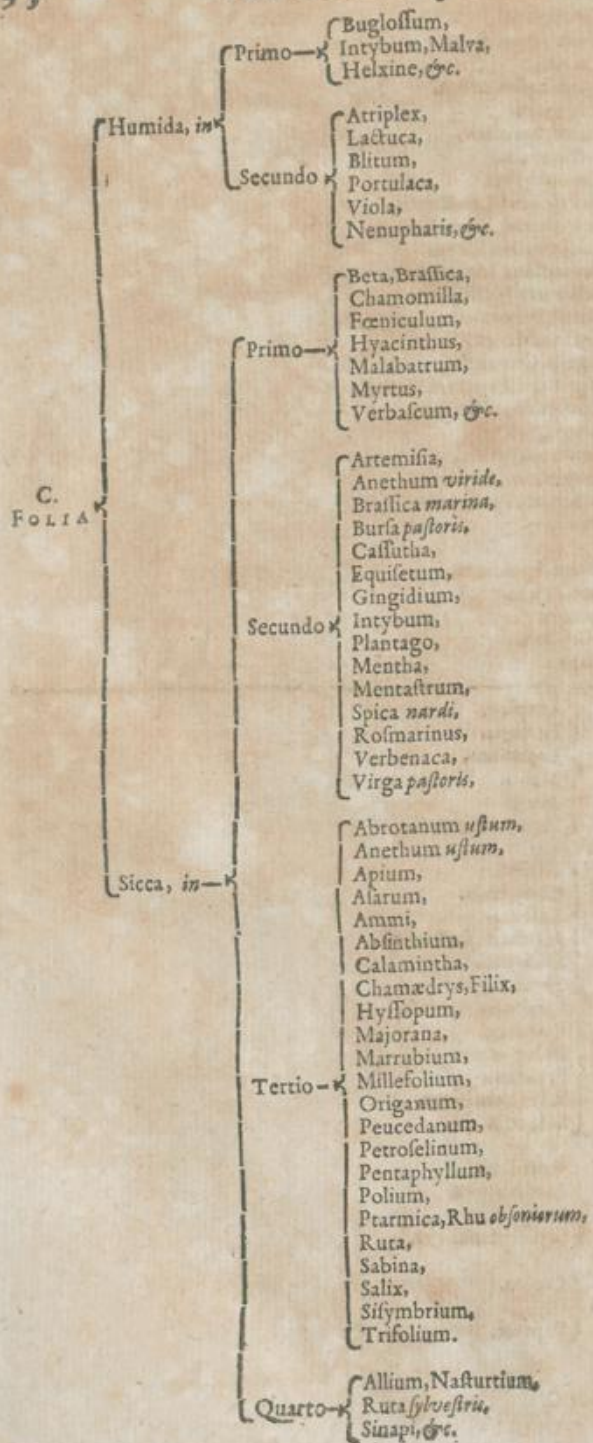 C.
FOLIA
Humida, in
Primo
Bugloſſum,
Intybum, Malva,
Helxine, &c.
Secundo
Atriplex,
Lactuca,
Blitum,
Portulaca,
Viola,
Nenupharis, &c.
Sicca, in
Primo
Beta, Braſſica,
Chamomilla,
Fœniculum,
Hyacinthus,
Malabatrum,
Myrtus,
Verbaſcum, &c.
Secundo
Artemiſia,
Anethum viride,
Braſſica marina,
Burſa paſtoris,
Caſſutha,
Equiſetum,
Gingidium,
Intybum,
Plantago,
Mentha,
Mentaſtrum,
Spica nardi,
Roſmarinus,
Verbenaca,
Virga paſtoris,
Tertio
Abrotanum uſtum,
Anethum uſtum,
Apium,
Aſarum,
Ammi,
Abſinthium,
Calamintha,
Chamædrys, Filix,
Hyſſopum,
Majorana,
Marrubium,
Millefolium,
Origanum,
Peucedanum,
Petroſelinum,
Pentaphyllum,
Polium,
Ptarmica, Rhu obſoniorum,
Ruta,
Sabina,
Salix,
Siſymbrium,
Trifolium.
Quarto
Allium, Naſturtium,
Ruta ſylveſtris,
Sinapi, &c.